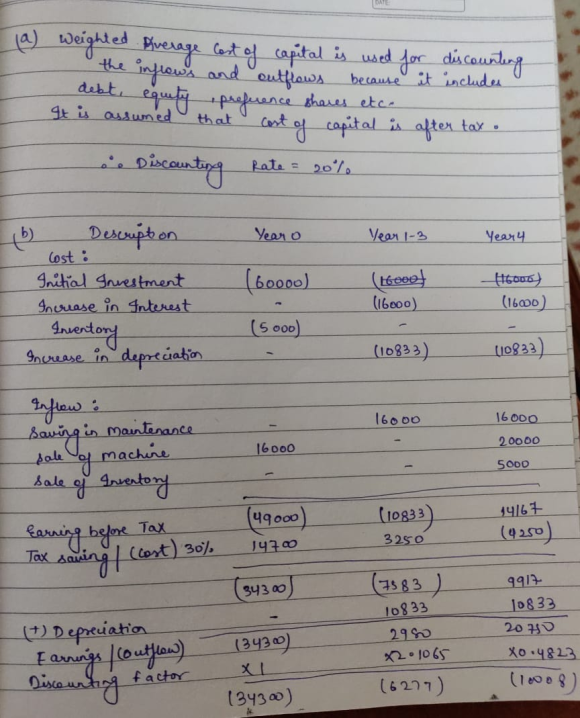 DATE
(a) Weighted Average Cost of capital is used for discounting
the inflows and outflows because it includes
debt, equity, preference shares etc.
It is assumed that cost of capital is after tax.
∴ Discounting Rate = 20%
(b) Description Year 0 Year 1-3 Year 4
Cost :
Initial Investment (60000) (16000) (16000)
Increase in Interest - (16000) (16000)
Inventory (5000) - -
Increase in depreciation - (10833) (10833)
Inflow :
Saving in maintenance - 16000 16000
Sale of machine 16000 - 20000
Sale of Inventory - - 5000
Earning before Tax (49000) (10833) 14167
Tax saving/(cost) 30% 14700 3250 (4250)
(34300) (7583) 9917
(+) Depreciation - 10833 10833
Earnings/(outflow) (34300) 2980 20750
Discounting factor X1 X2.1065 X0.4823
(34300) (6277) (10008)